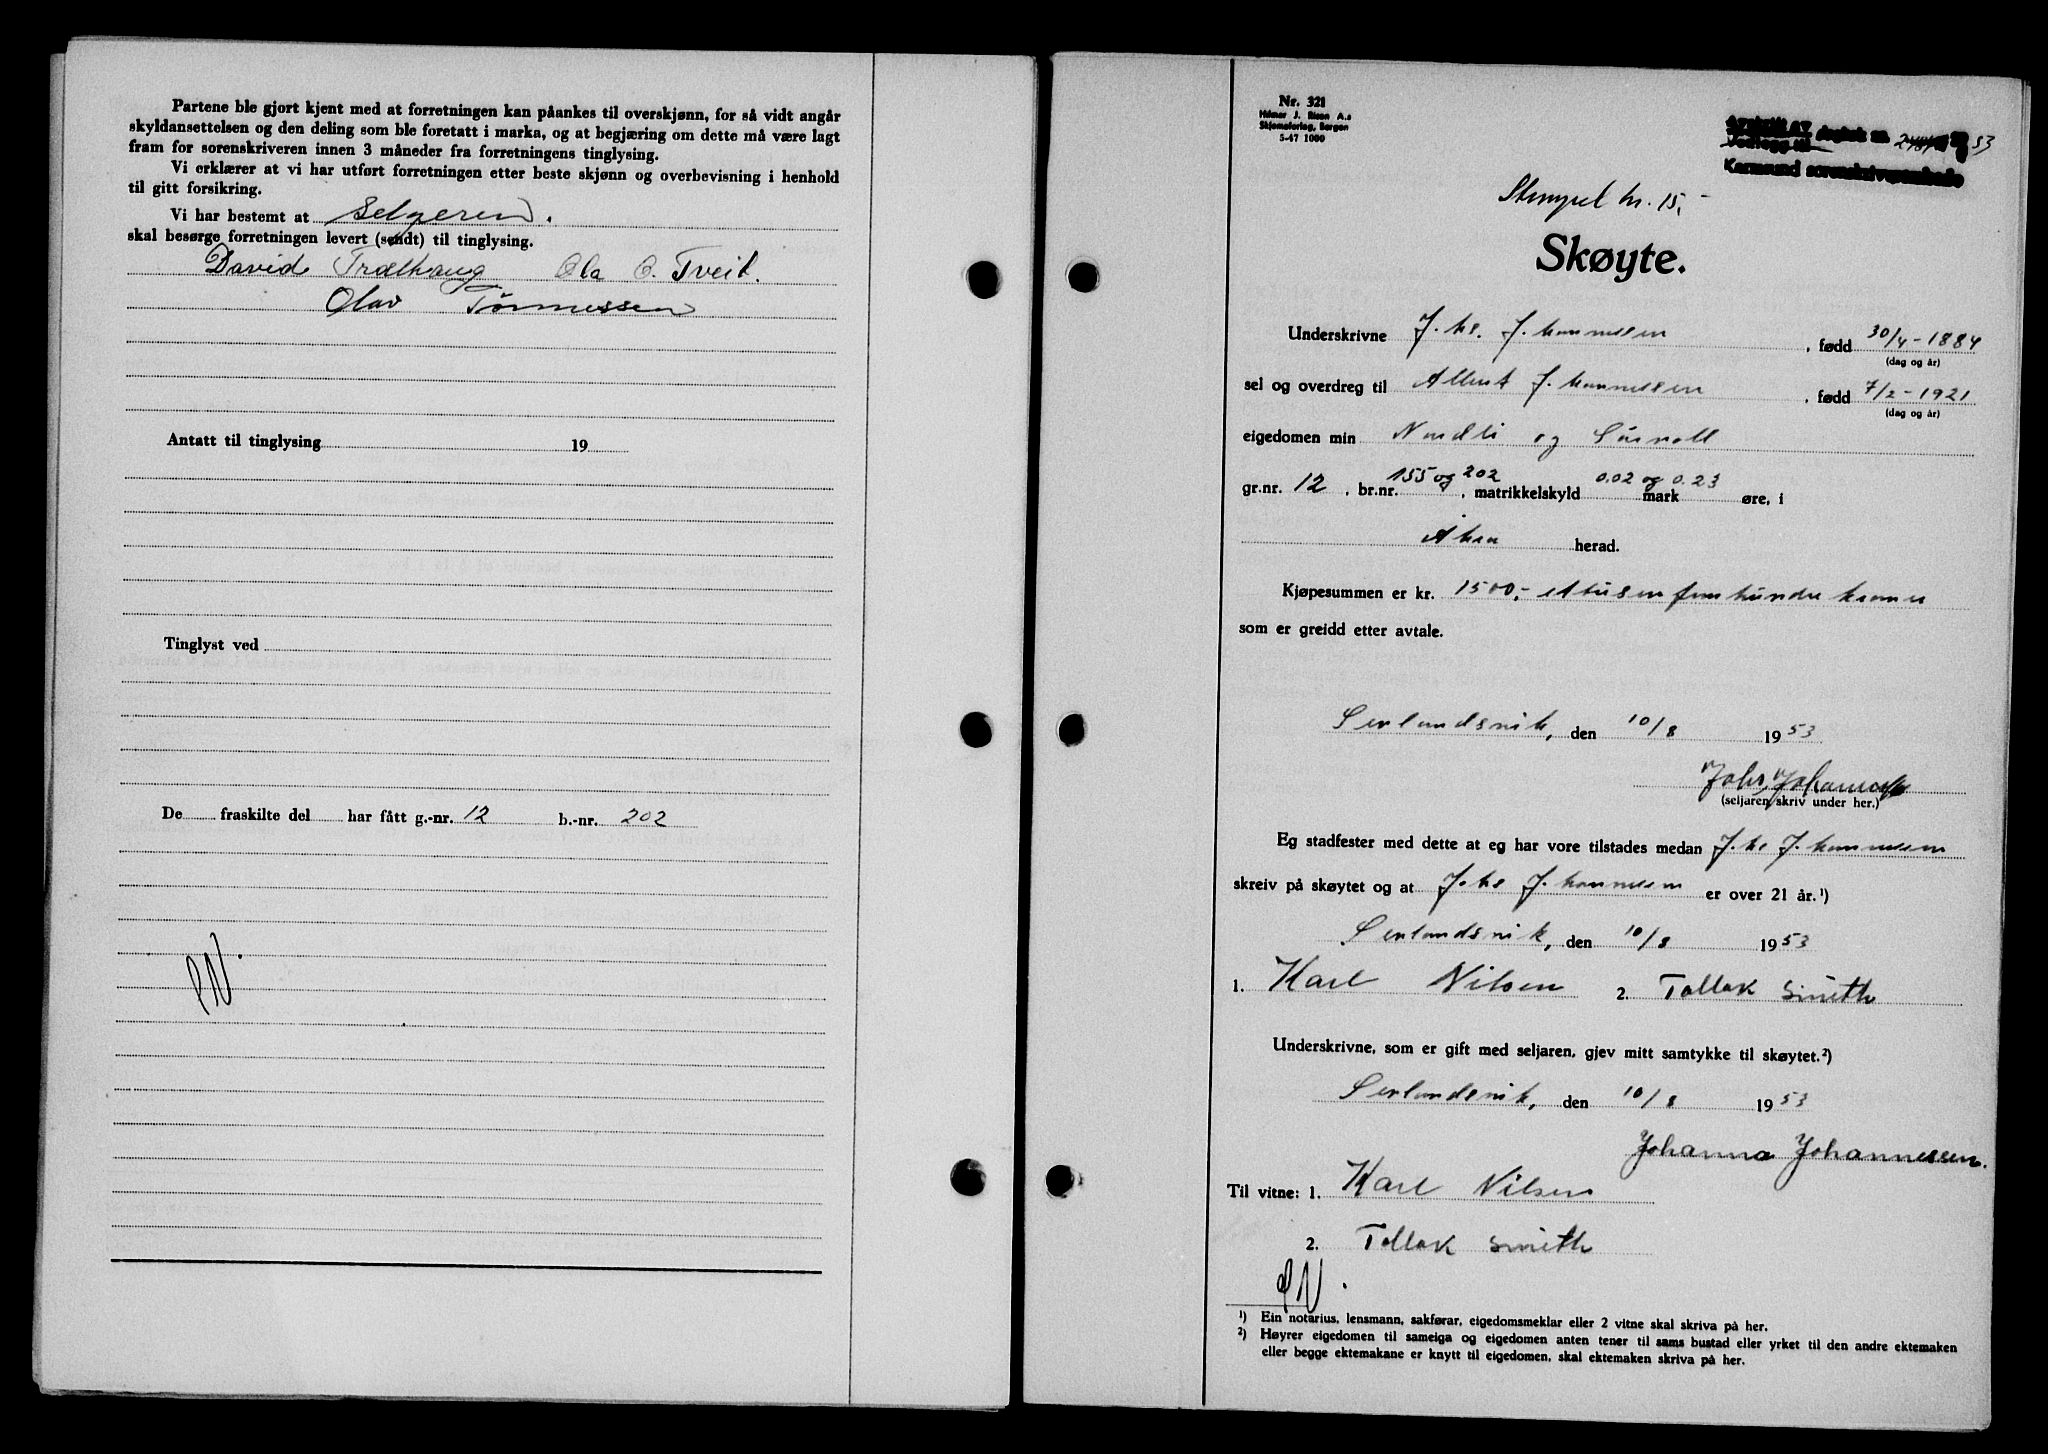 Partene ble gjort kjent med at forretningen kan påankes til overskjønn, for så vidt angår
skyldansettelsen og den deling som ble foretatt i marka, og at begjæring om dette må være lagt
fram for sorenskriveren innen 3 måneder fra forretningens tinglysing.
Vi erklærer at vi har utført forretningen etter beste skjønn og overbevisning i henhold
til gitt forsikring.
Vi har bestemt at selgeren.
skal besørge forretningen levert (sendt) til tinglysing.
David Trælhaug Ola O. Tveit.
Olav
Antatt til tinglysing 19
Tinglyst ved
De fraskilte del har fått g.-nr. 12 b.-nr. 202
Nr. 321
Hilmar J. Risen A.s
Skjemaforlag, Bergen
5-47 1000
Avskrift av
Vedlegg til dagbok nr. 53
Karmsund sorenskriverembede
Stempel kr. 15,-
Skøyte.
Underskrivne Johs. Johannessen, fødd 30/4-1884
(dag og år)
sel og overdreg til Albert Johannessen, fødd 7/2-1921
(dag og år)
eigedomen min Nordli og
gr.nr. 12, br.nr. 155 og 202, matrikkelskyld 0.02 og 0.23 mark øre, i
Åkra herad.
Kjøpesummen er kr. 1500,- ettusenfemhundre kroner
som er greidd etter avtale.
Sevlandsvik, den 10/8 1953
Johs, Johannessen
(seljaren skriv under her.)
Eg stadfester med dette at eg har vore tilstades medan Johs Johannessen
skreiv på skøytet og at Johs Johannessen er over 21 år.¹)
Sevlandsvik, den 10/8 1953
1. Karl Nilsen 2. Tollak Smith
Underskrivne, som er gift med seljaren, gjev mitt samtykke til skøytet.²)
Sevlandsvik, den 10/8 1953
Johanna Johannessen.
Til vitne: 1. Karl Nilsen
2. Tollak Smith
¹) Ein notarius, lensmann, sakførar, eigedomsmeklar eller 2 vitne skal skriva på her.
²) Høyrer eigedomen til sameiga og eigedomen anten tener til sams bustad eller yrket til den andre ektemaken
eller begge ektemakane er knytt til eigedomen, skal ektemaken skriva på her.